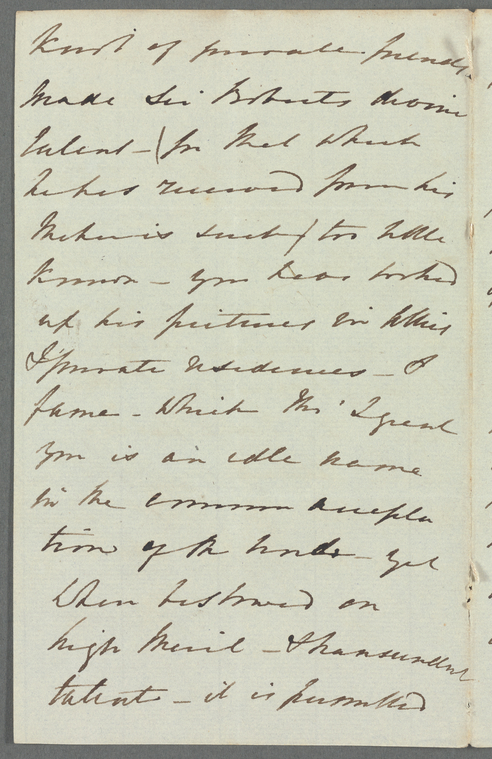 kind of private friends
made Sir Roberts divine
talent - (for that which
he has received from his
Maker is such) too little
known - you have locked
up his pictures in
& private residences - &
fame - which tho' I grant
you is an idle name
in the common accepta
tion of the words - yet
when bestowed on
high Merit - & transcendent
talent - it is permitted